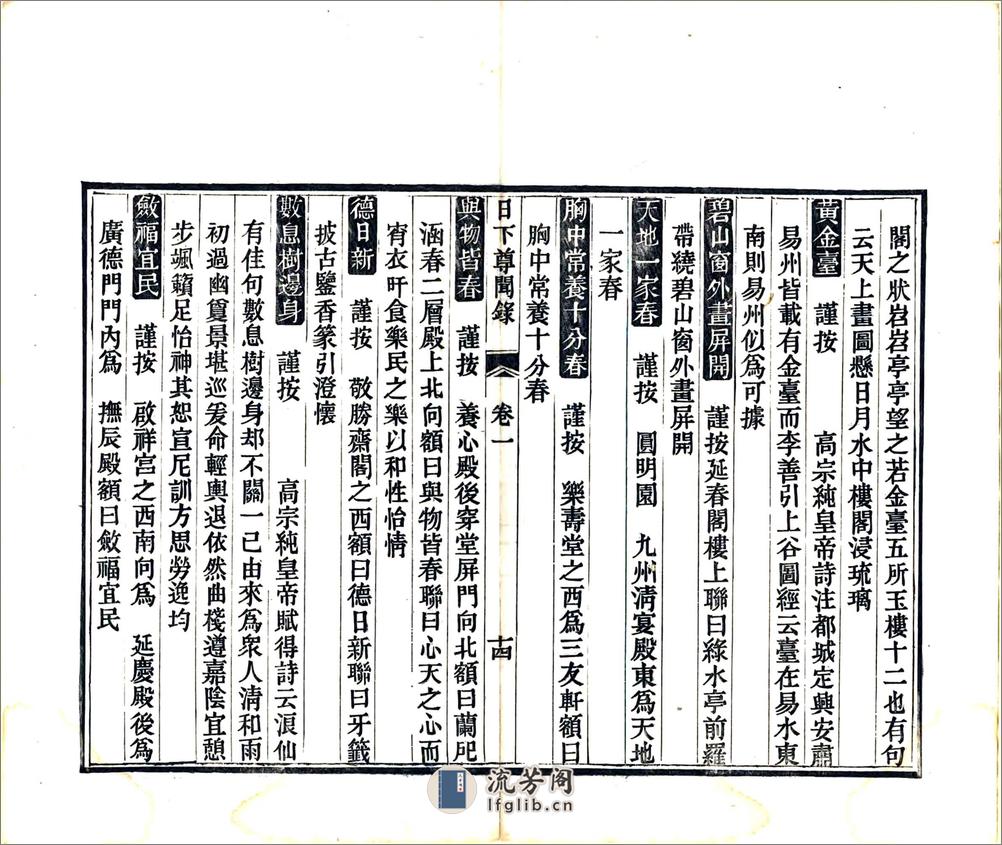 閣之狀岧岧亭亭望之若金臺五所玉樓十二也有句
云天上畫圖懸日月水中樓閣浸琉璃
黃金臺 謹按 高宗純皇帝詩注都城定興安肅
易州皆載有金臺而李善引上谷圖經云臺在易水東
南則易州似爲可據
碧山窗外畫屏開 謹按延春閣樓上聯曰綠水亭前羅
帶繞碧山窗外畫屏開
天地一家春 謹按 圓明園 九州清宴殿東爲天地
一家春
胸中常養十分春 謹按 樂壽堂之西爲三友軒額曰
胸中常養十分春
日下尊聞錄 卷一 十四
與物皆春 謹按 養心殿後穿堂屏門向北額曰蘭
涵春二層殿上北向額曰與物皆春聯曰心天之心而
宵衣旰食樂民之樂以和性怡情
德日新 謹按 敬勝齋閣之西額曰德日新聯曰牙籤
披古鑒香篆引澄懷
數息樹邊身 謹按 高宗純皇帝賦得詩云浪仙
有佳句數息樹邊身却不關一己由來爲衆人清和雨
初過幽篔景堪巡爰命輕輿退依然曲棧遵嘉陰宜憩
步颯籟足怡神其恕宣尼訓方思勞逸均
斂福宜民 謹按 啟祥宮之西南向爲 延慶殿後爲
廣德門門內爲 撫辰殿額曰斂福宜民
流芳阁
lfglib.cn